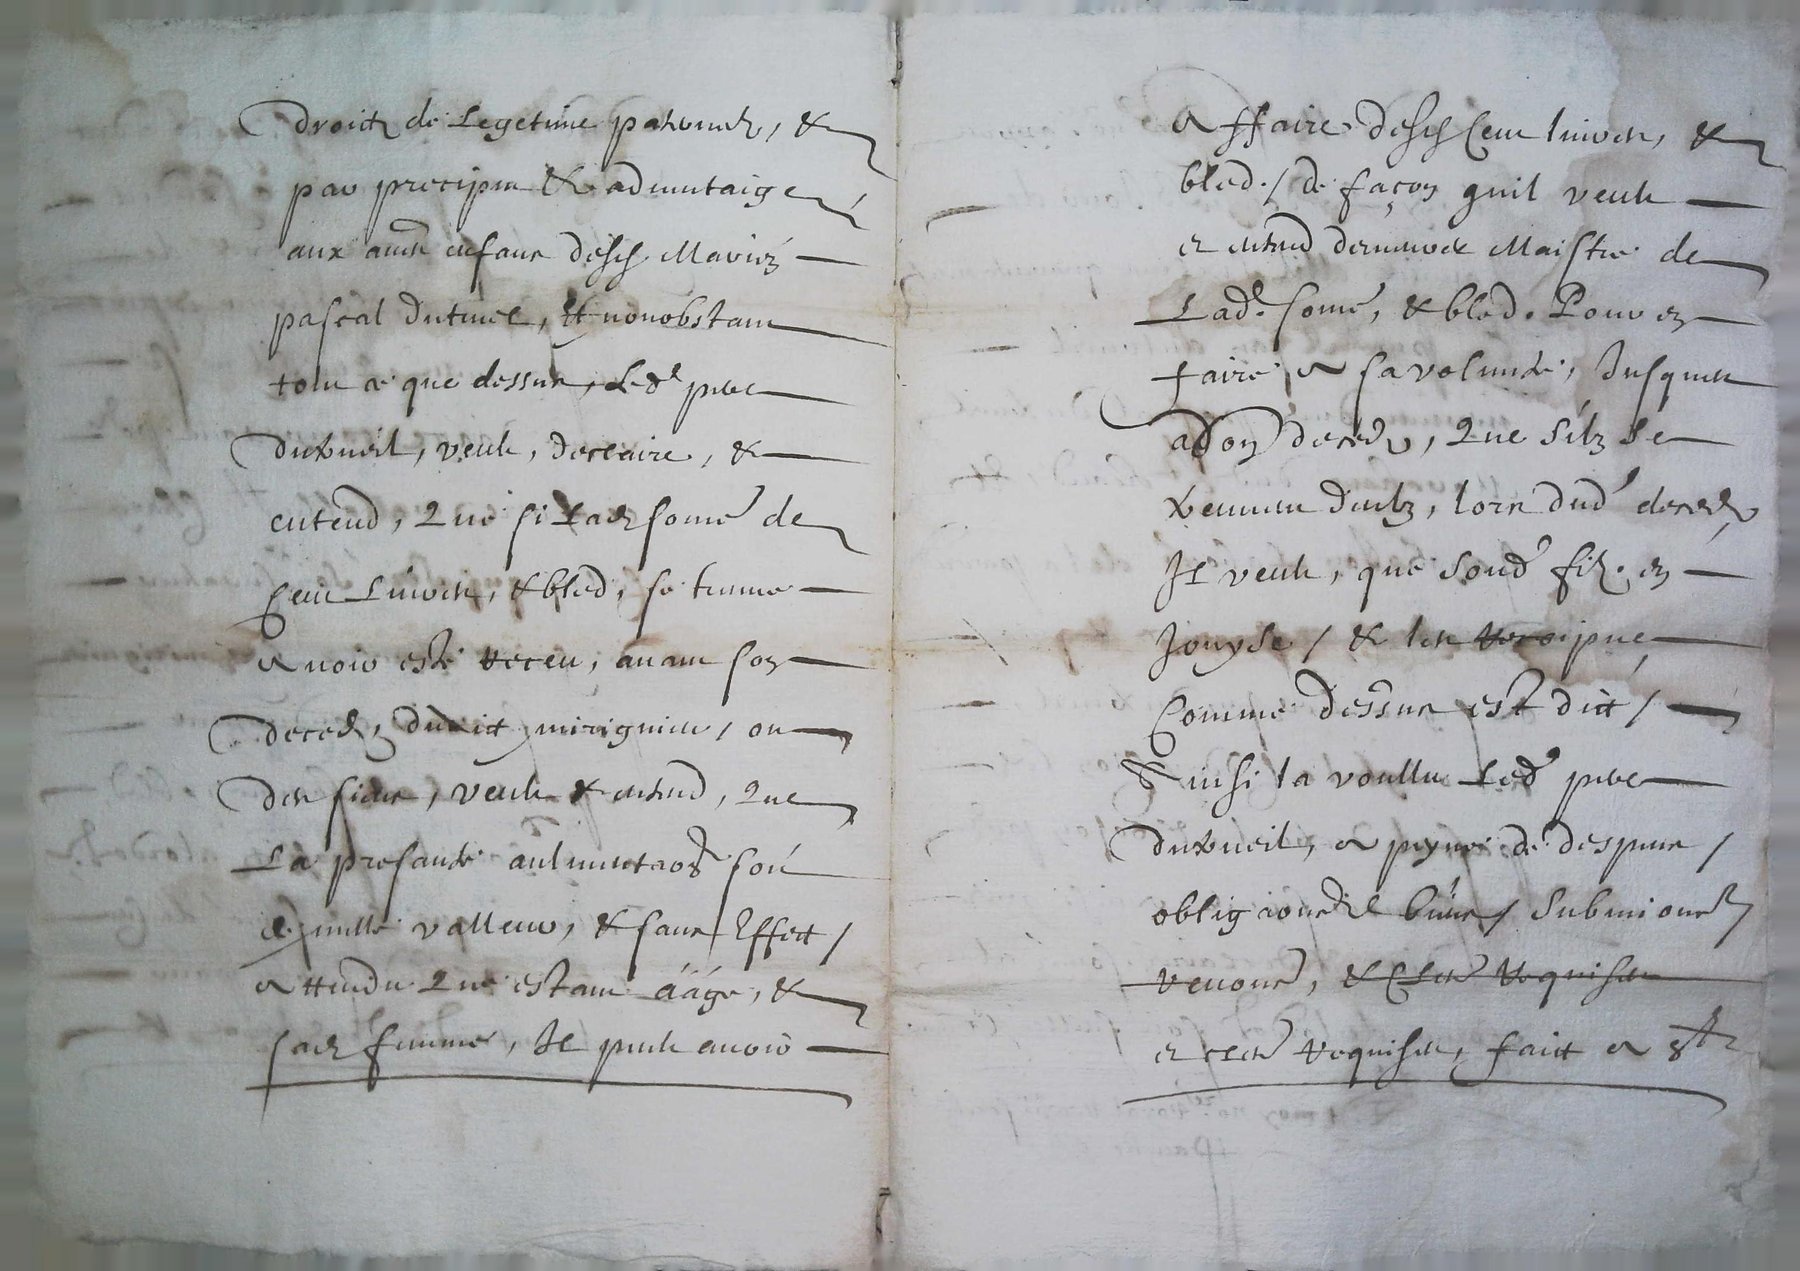 droictz de Legetime paternelz, &
par precipu & advantaige
aux autres enfans desd. Mariez
pascal dutueil, Et nonobstant
tout ce que dessus, Led. pier
dutueil, veult, declaire, &
entend, Que si Lad. some de
Cent Livres, & bled, se trouve
avoir esté receu, avant son
deces, dudict mirigniers / ou
des siens, veult & entend, Que
La presante soit
de nulle valleur, & sans Effect /
attendu Que estant áágé, &
sad. femme, Il peult avoir
Affaire desd. Cent livres, &
bled. / de façon quil veult
et entend demeurer Maistre de
Lad. some, & bled. Pour en
faire a sa volunté, Jusques
a son deces, Que Silz se
treuvent deubz, lors dud. deces
Il veult, que sond. filz. en
Jouyse / & les
Comme dessus est dict /
Ainsi la voullu Led. pier
dutueil, a peyne de despens /
obligaons de biens / Submions
renons, & Clers requises
et clers requises, faict a